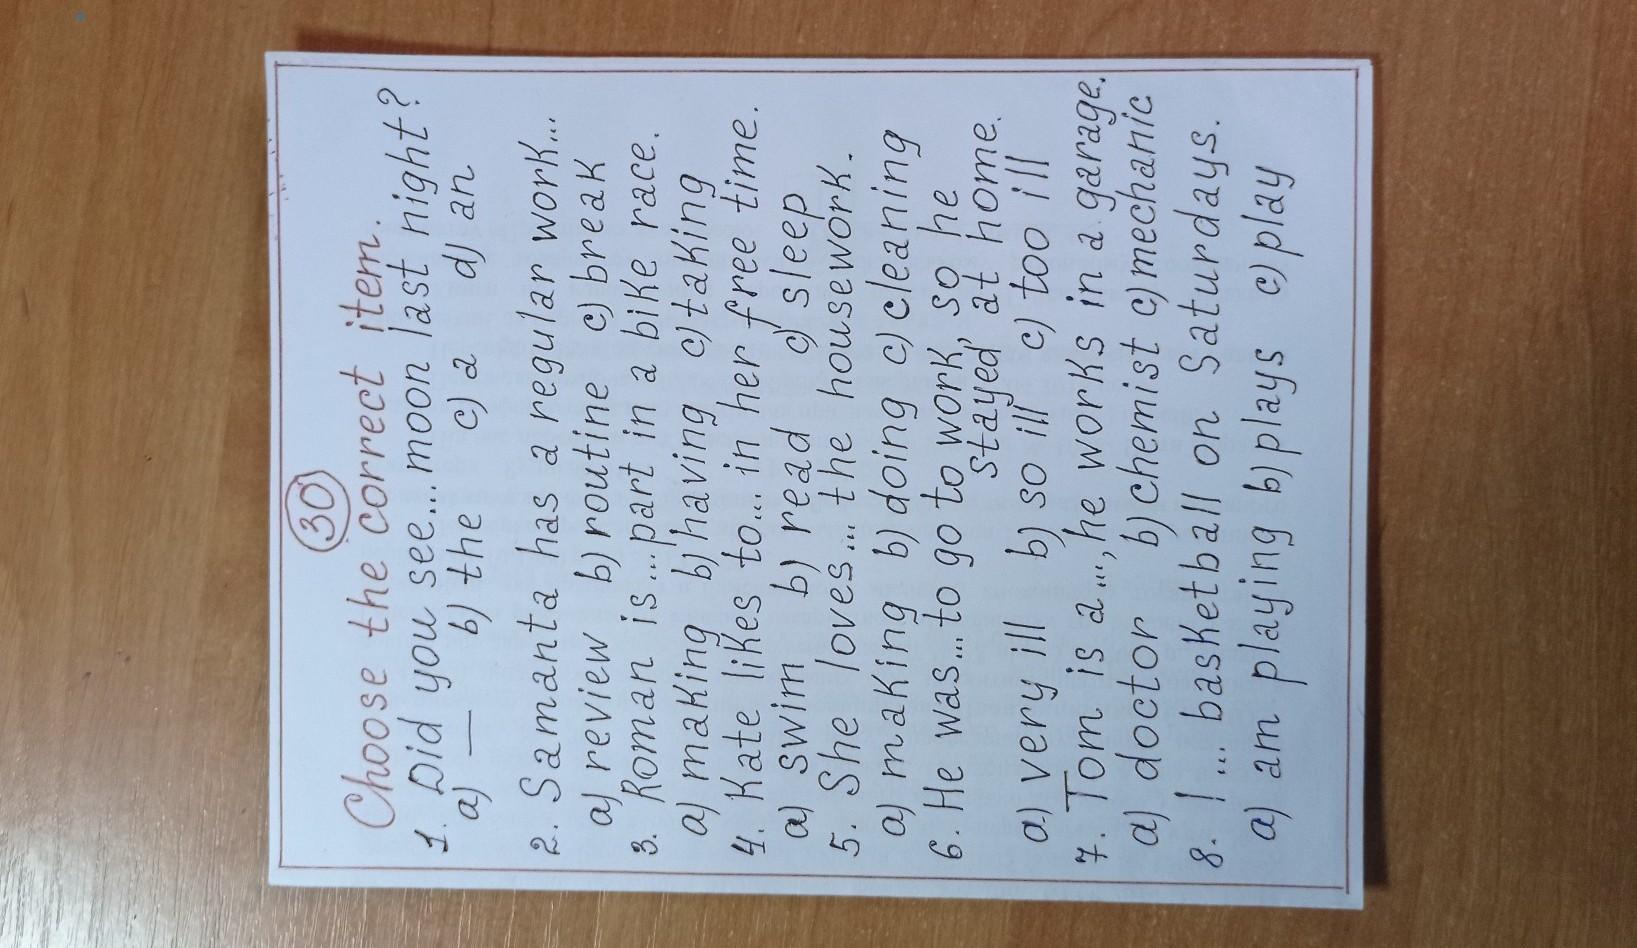 30
Choose the correct item.
1. Did you see... moon last night?
a) — b) the c) a d) an
2. Samanta has a regular work...
a) review b) routine c) break
3. Roman is... part in a bike race.
a) making b) having c) taking
4. Kate likes to... in her free time.
a) swim b) read c) sleep
5. She loves... the housework.
a) making b) doing c) cleaning
6. He was... to go to work, so he
stayed at home.
a) very ill b) so ill c) too ill
7. Tom is a..., he works in a garage.
a) doctor b) chemist c) mechanic
8. I ... basketball on Saturdays.
a) am playing b) plays c) play